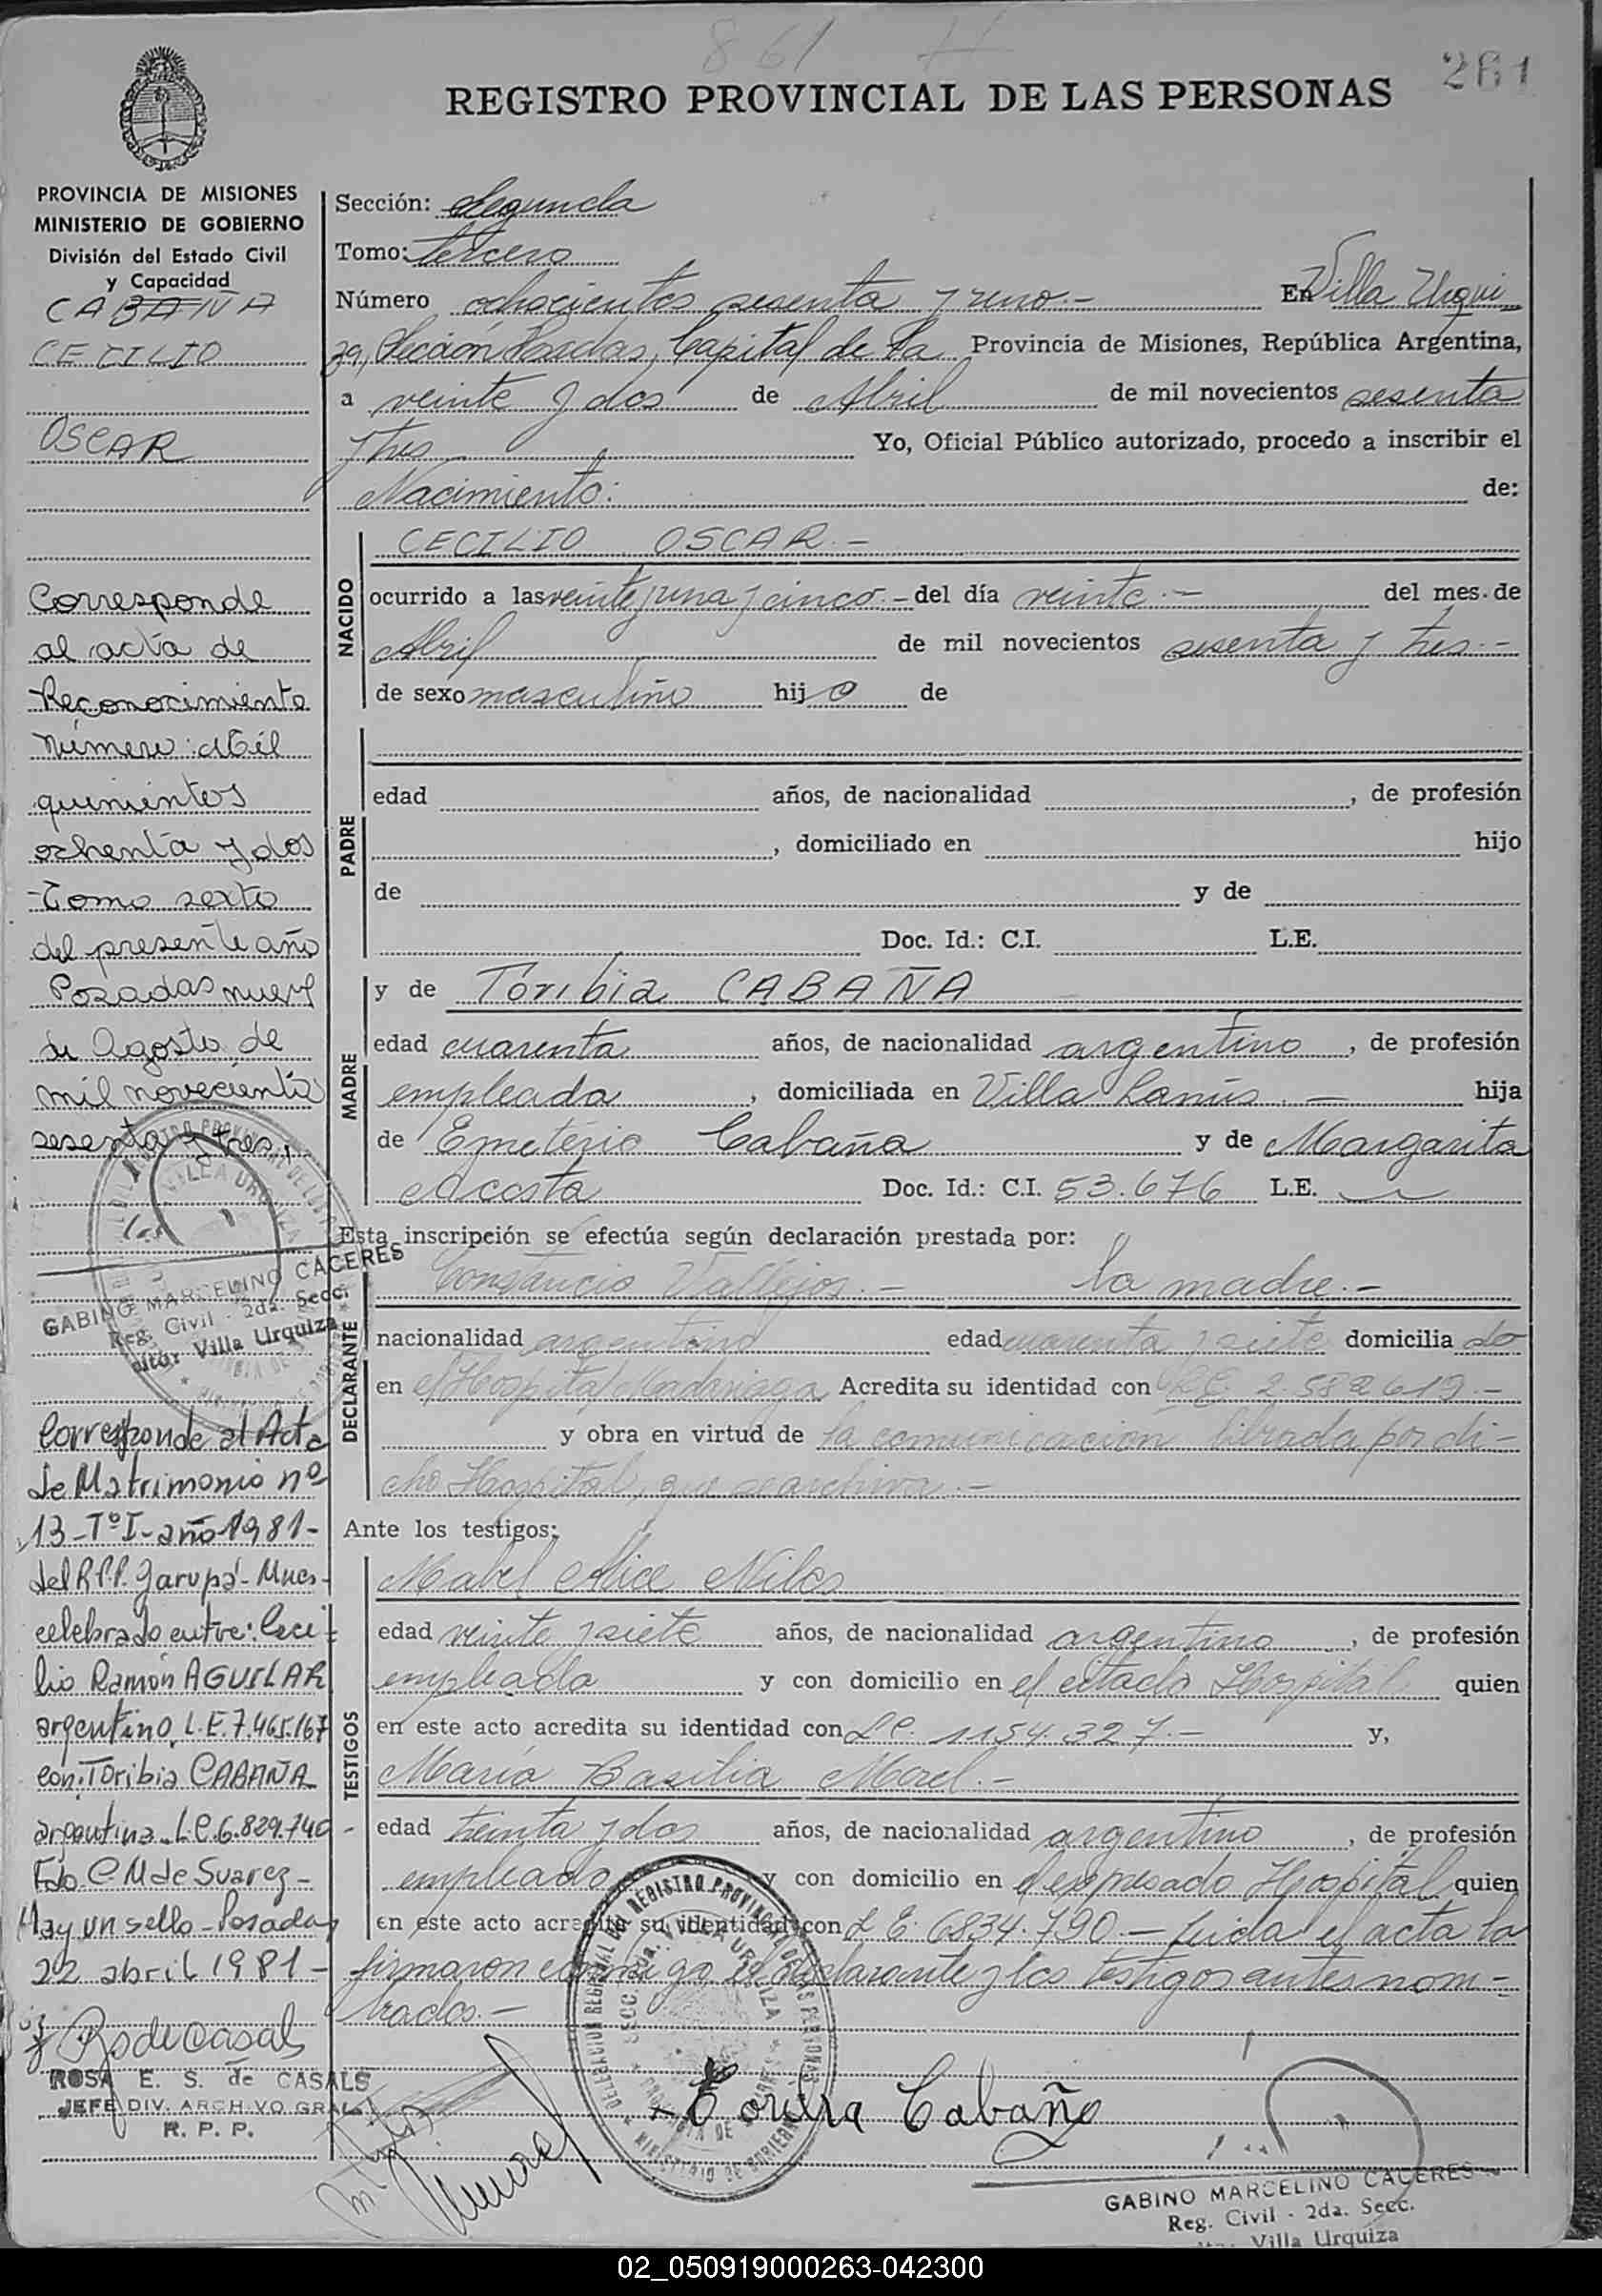 861
261
REGISTRO PROVINCIAL DE LAS PERSONAS
PROVINCIA DE MISIONES
MINISTERIO DE GOBIERNO
División del Estado Civil
y Capacidad
CABAÑA
CECILIO
OSCAR
Corresponde
al acta de
Reconocimiento
número: Mil
quinientos
ochenta y dos
Tomo sexto
del presente año
Posadas nueve
de Agosto de
mil novecientos
sesenta y tres.
GABINO MARCELINO CACERES
Reg. Civil - 2da. Secc.
Villa Urquiza
Corresponde al Acta
de Matrimonio nº
13-TºI-año 1981-
del R.P.P. Garupá-Mnes-
celebrado entre: Ceci-
lio Ramón AGUILAR
argentino L.E. 7.465.167
con: Toribia CABAÑA
argentina L.C. 6.829.740-
Fdo C M de Suarez-
Hay un sello-Posadas
22 abril 1981-
ROSA E. S. de CASALS
JEFE DIV. ARCHIVO GRAL
R. P. P.
Sección: Segunda
Tomo: tercero
Número ochocientos sesenta y uno.- En Villa Urqui
za, Sección Posadas, Capital de la Provincia de Misiones, República Argentina,
a veinte y dos de Abril de mil novecientos sesenta
y tres Yo, Oficial Público autorizado, procedo a inscribir el
Nacimiento: de:
NACIDO
CECILIO OSCAR.-
ocurrido a las veinte y una y cinco.- del día veinte.- del mes de
Abril de mil novecientos sesenta y tres.-
de sexo masculino hijo de
PADRE
edad años, de nacionalidad , de profesión
, domiciliado en hijo
de y de
Doc. Id.: C.I. L.E.
MADRE
y de Toribia CABAÑA
edad cuarenta años, de nacionalidad argentino, de profesión
empleada, domiciliada en Villa Lanús.- hija
de Emeterio Cabaña y de Margarita
Acosta Doc. Id.: C.I. 53.676 L.E.
Esta inscripción se efectúa según declaración prestada por:
DECLARANTE
Constancio Vallejos.- la madre.-
nacionalidad argentino edad cuarenta y siete domiciliado
en el Hospital Madariaga Acredita su identidad con 2.582619.-
y obra en virtud de la comunicación librada por di-
cho Hospital, que se archiva.-
Ante los testigos:
TESTIGOS
Mabel Alice Niles
edad veinte y siete años, de nacionalidad argentina, de profesión
empleada y con domicilio en el citado Hospital quien
en este acto acredita su identidad con L.C. 1154.327.- y,
María Basilia Morel.-
edad treinta y dos años, de nacionalidad argentino, de profesión
empleado y con domicilio en el expresado Hospital quien
en este acto acredita su identidad con L E. 6834.790.- Leida el acta la
firmaron conmigo el declarante y los testigos antes nom-
brados.-
Toribia Cabaña
GABINO MARCELINO CACERES
Reg. Civil - 2da. Secc.
Villa Urquiza
02_050919000263-042300